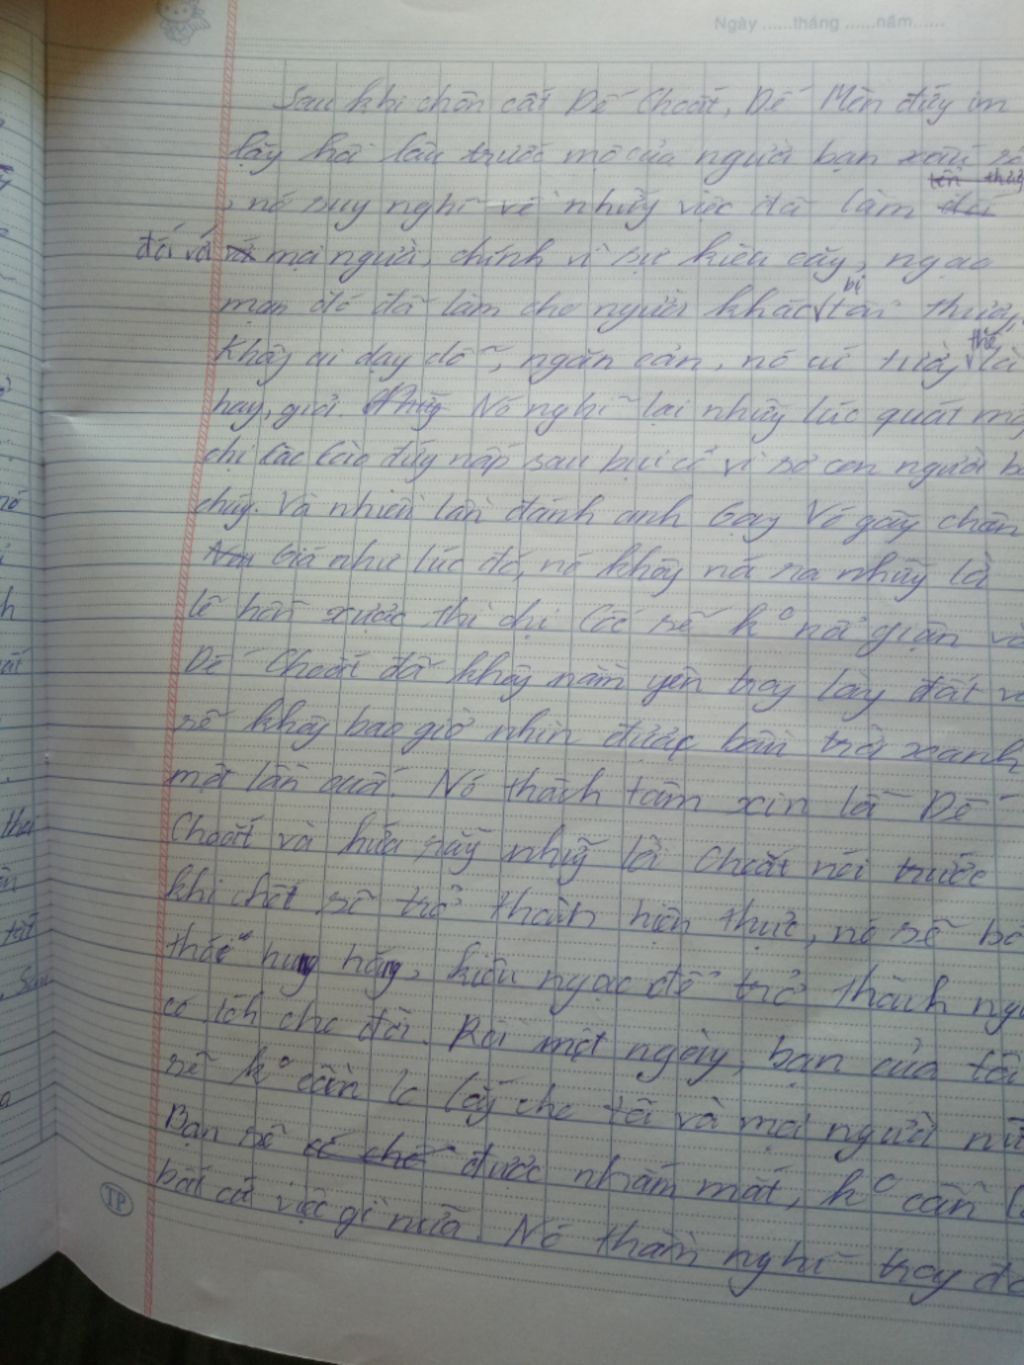 Ngày ......tháng ......năm......
Sau khi chôn cất Dế Choắt, Dế Mèn đứng im
lặng hồi lâu trước mộ của người bạn xấu số
, nó suy nghĩ về những việc đã làm
đối với mọi người, chính vì sự kiêu căng, ngạo
mạn đó đã làm cho người khác bị tổn thương.
Không ai dạy dỗ, ngăn cản, nó cứ tưởng thế là
hay, giỏi. Nó nghĩ lại những lúc quát mấy
chị Cào Cào đứng nấp sau bụi cỏ vì sợ con người
chúng. Và nhiều lần đánh anh Gọng Vó gãy chân
Giá như lúc đó, nó không nói ra những lời
lẽ hỗn xược thì chị Cốc sẽ k° nổi giận và
Dế Choắt đã không nằm yên trong lòng đất và
sẽ không bao giờ nhìn được bầu trời xanh
một lần nữa. Nó thành tâm xin lỗi Dế
Choắt và hứa rằng những lời Choắt nói trước
khi chết sẽ trở thành hiện thực, nó sẽ bỏ
thói hung hăng, kiêu ngạo để trở thành
có ích cho đời. Rồi một ngày, bạn của tôi
sẽ k° cần lo lắng cho tôi và mọi người nữa
Bạn sẽ được nhắm mắt, k° cần
bất cứ việc gì nữa. Nó thầm nghĩ trong
TP